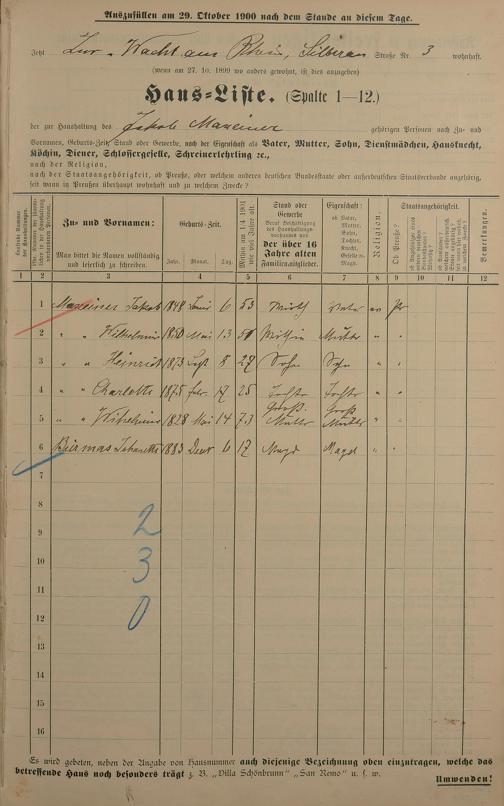 Auszufüllen am 29. Oktober 1900 nach dem Stande an diesem Tage.
Jetzt Zur „Wacht am Rhein, Silberau Straße Nr. 3 wohnhaft.
(wenn am 27. 10. 1899 wo anders gewohnt, ist dies anzugeben)
Haus-Liste. (Spalte 1—12.)
der zur Haushaltung des Jakob Maxeiner gehörigen Personen nach Zu- und
Vornamen, Geburts-Zeit, Stand oder Gewerbe, nach der Eigenschaft als Vater, Mutter, Sohn, Dienstmädchen, Hausknecht,
Köchin, Diener, Schlossergeselle, Schreinerlehrling ec.,
nach der Religion,
nach der Staatsangehörigkeit, ob Preuße, oder welchem anderen deutschen Bundesstaate oder außerdeutschen Staatsverbande angehörig,
seit wann in Preußen überhaupt wohnhaft und zu welchem Zwecke?
Zu- und Vornamen:
Man bittet die Namen vollständig und leserlich zu schreiben.
Geburts-Zeit.
Jahr. Monat. Tag.
Mithin am 1/4 1901 wie viel Jahre alt.
Stand oder Gewerbe
der über 16 Jahre alten Familienmitglieder.
Eigenschaft:
ob Vater, Mutter, Sohn, Tochter, Knecht, Geselle o. Magd.
Religion.
Staatsangehörigkeit.
Ob Preuße?
Bemerkungen.
1 2 3 4 5 6 7 8 9 10 11 12
1 Maxeiner Jakob 1848 Juni 6 53 Wirth Vater ev Pr
2 " " Wilhelmine 1850 Mai 13 Wirthin Mutter " "
3 " " Heinrich 1873 Sept 8 27 Sohn Sohn " "
4 " " Charlotte 1875 Febr 17 25 Tochter Tochter " "
5 " " Wilhelmine 1828 Mai 14 73 Groß Mutter Groß Mutter " "
6 1883 6 17 Magd Magd " "
7
8
9
10
11
12
13
14
15
16
2
3
0
Es wird gebeten, neben der Angabe von Hausnummer auch diejenige Bezeichnung oben einzutragen, welche das
betreffende Haus noch besonders trägt z. B. „Villa Schönbrunn" „San Remo" u. s. w.
Umwenden!